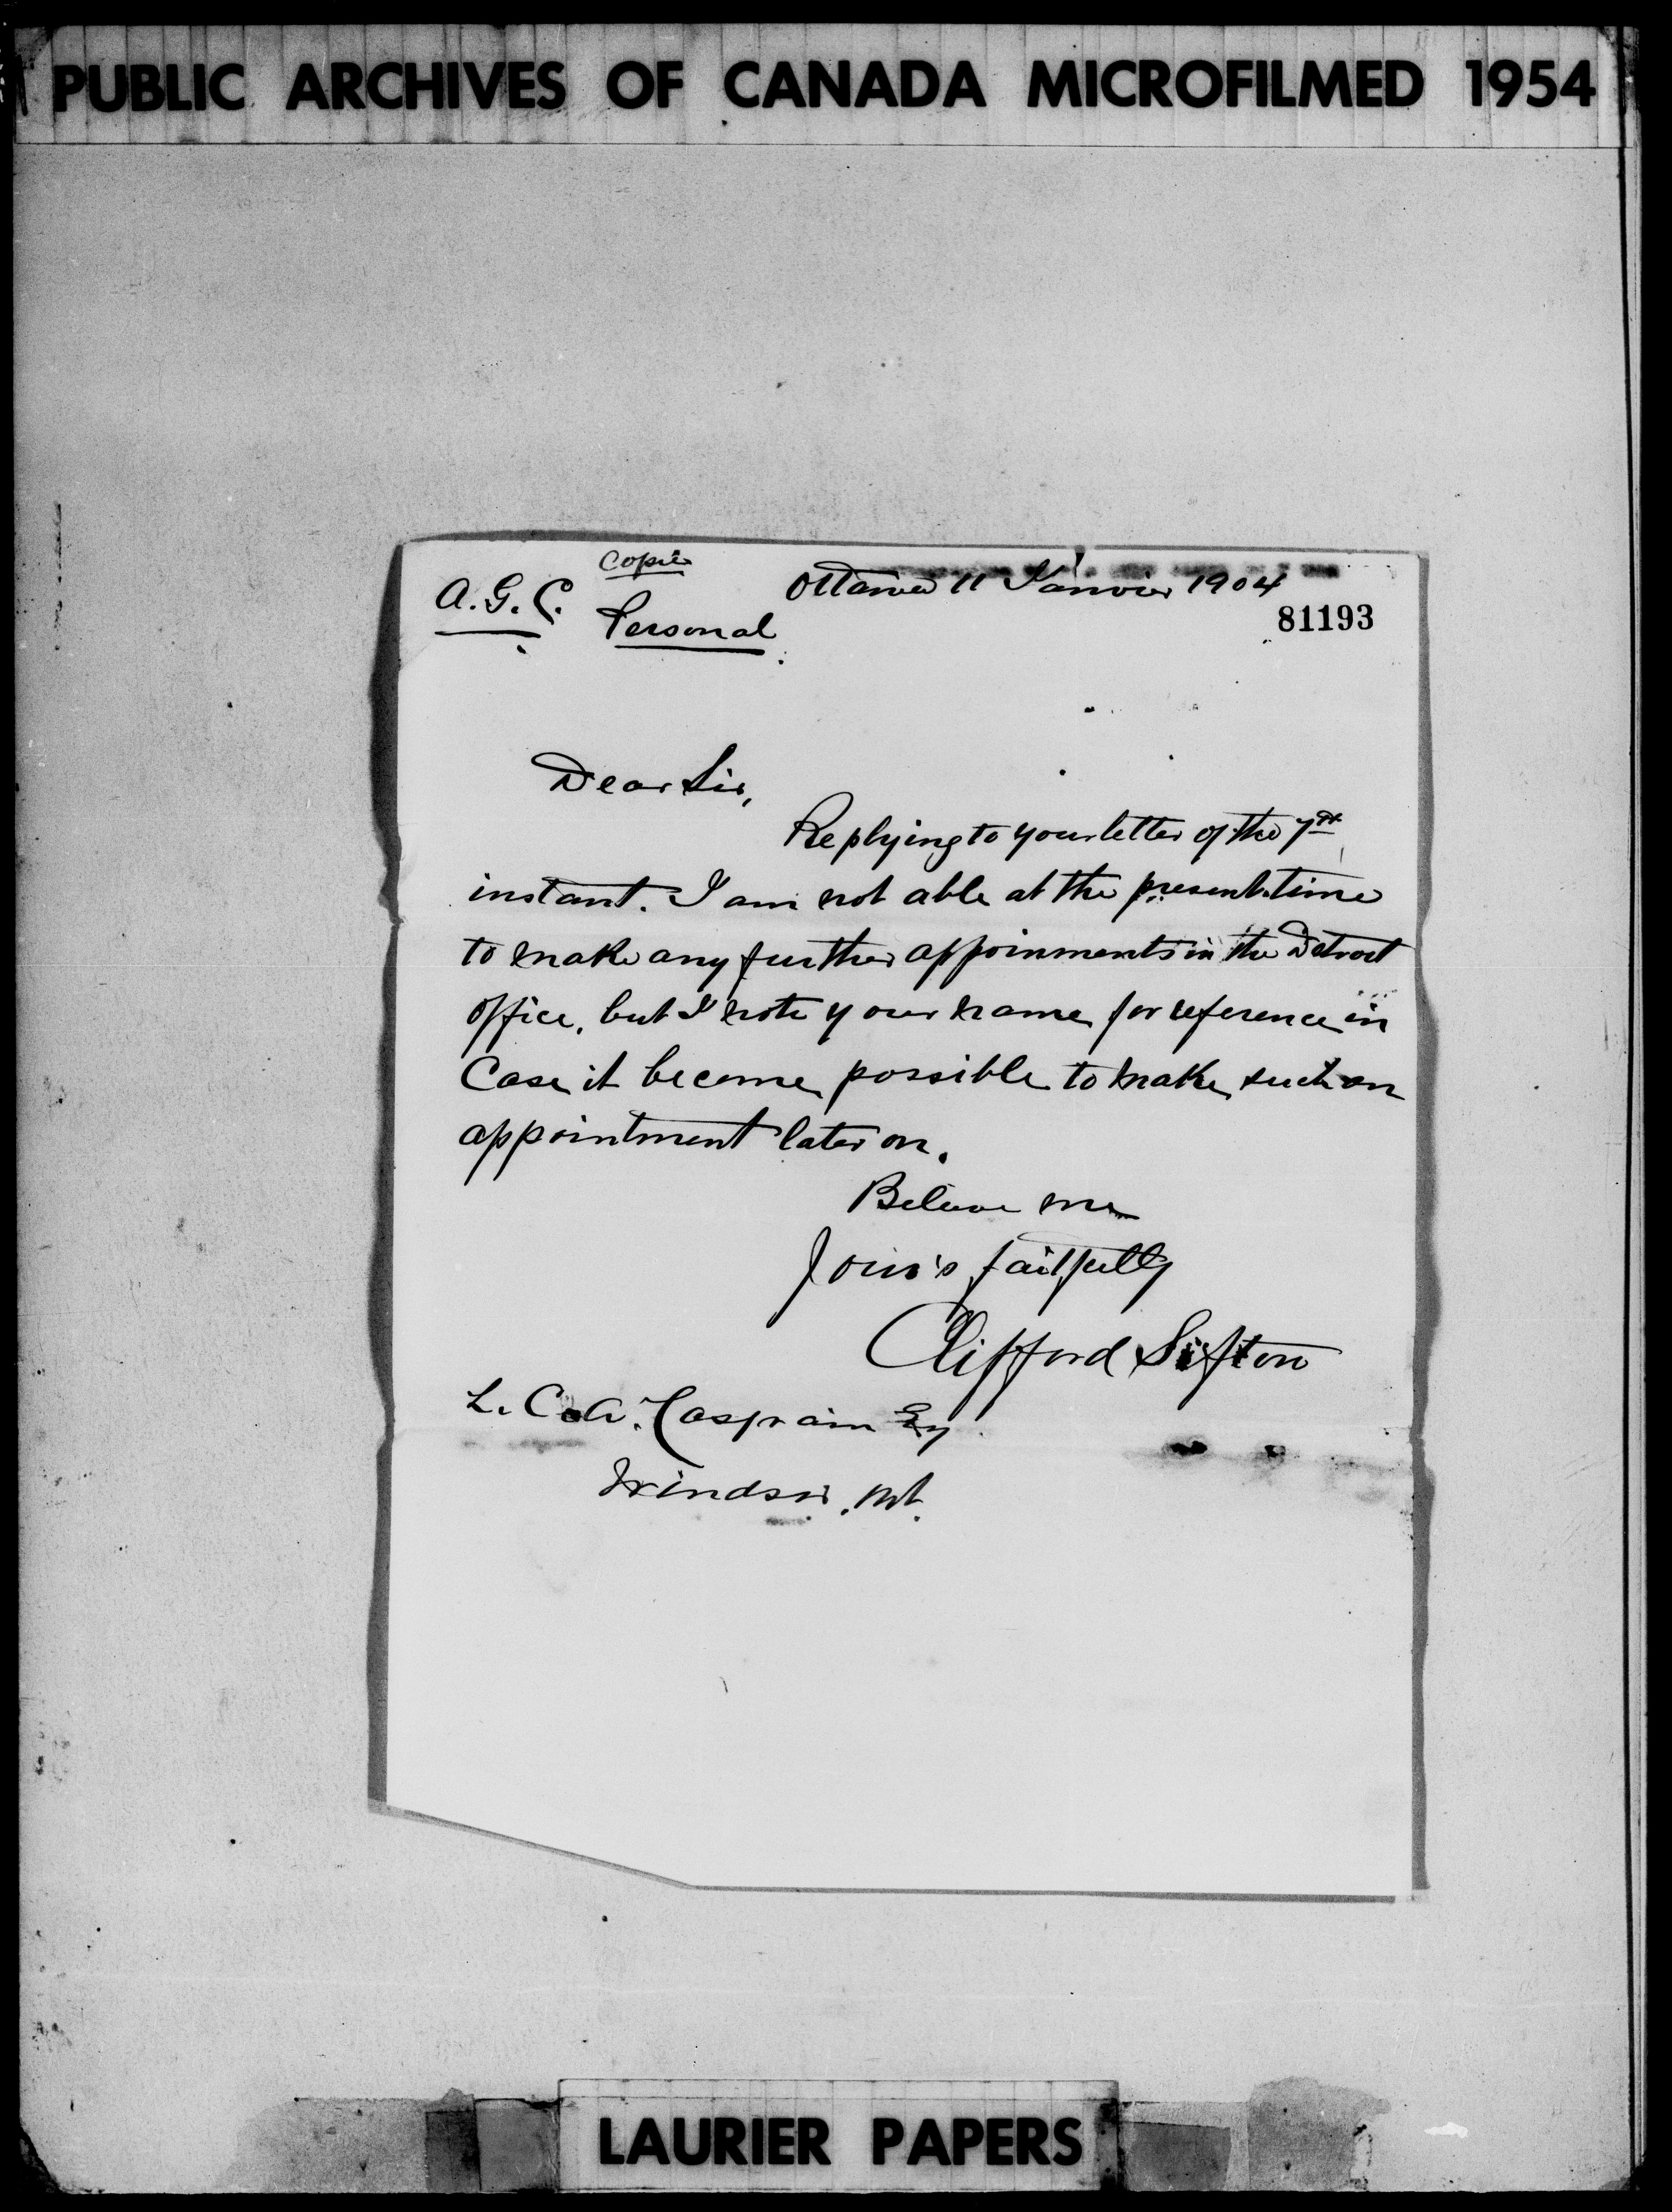 PUBLIC ARCHIVES OF CANADA MICROFILMED 1954
Copie
A. G. C. Ottawa 11 Janvier 1904
Personal 81193
Dear Sir,
Replying to your letter of the 7th
instant. I am not able at the present time
to make any further appoinments in the Detroit
office, but I note your name for reference in
Case it become possible to make such an
appointment later on.
Believe me
Your's faitfully
Clifford Sifton
L. C. A. Casgrain Esq
Windsor. Ont.
LAURIER PAPERS